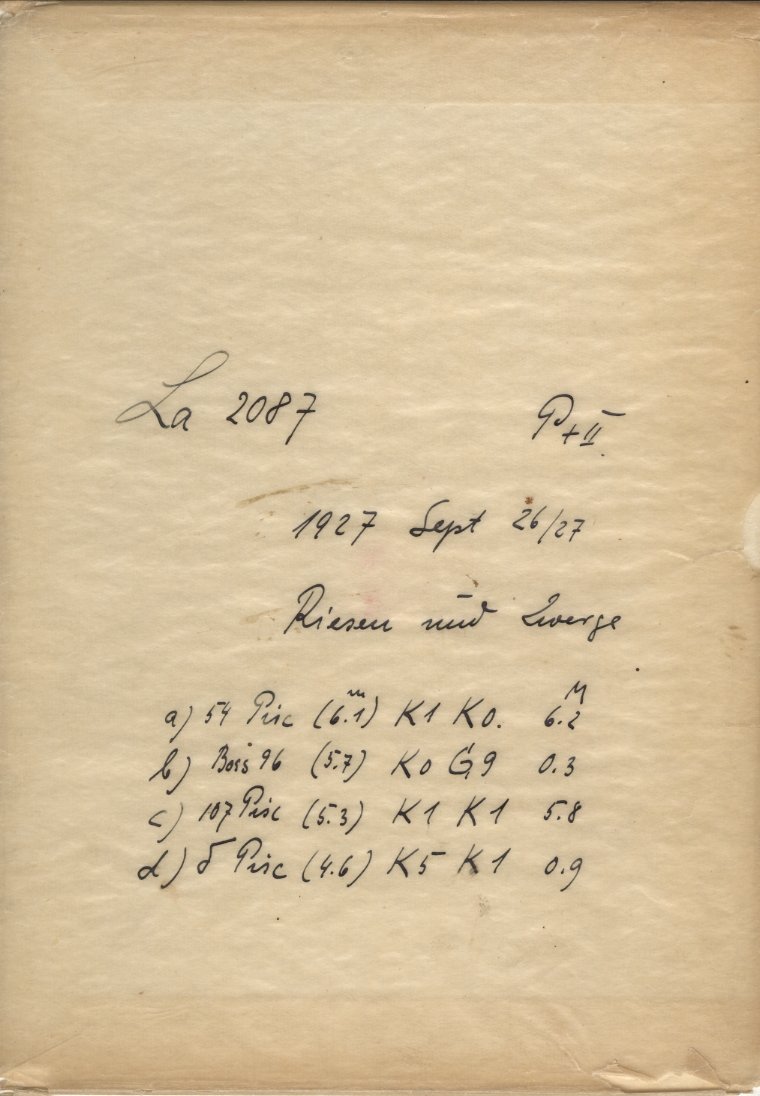 La 2087 P+II
1927 Sept 26/27
Riesen und Zwerge
a) 54 Pisc (6.1)ᵐ K1 K0. 6.2ᴹ
b) Boss 96 (5.7) K0 G9 0.3
c) 107 Pisc (5.3) K1 K1 5.8
d) δ Pisc (4.6) K5 K1 0.9